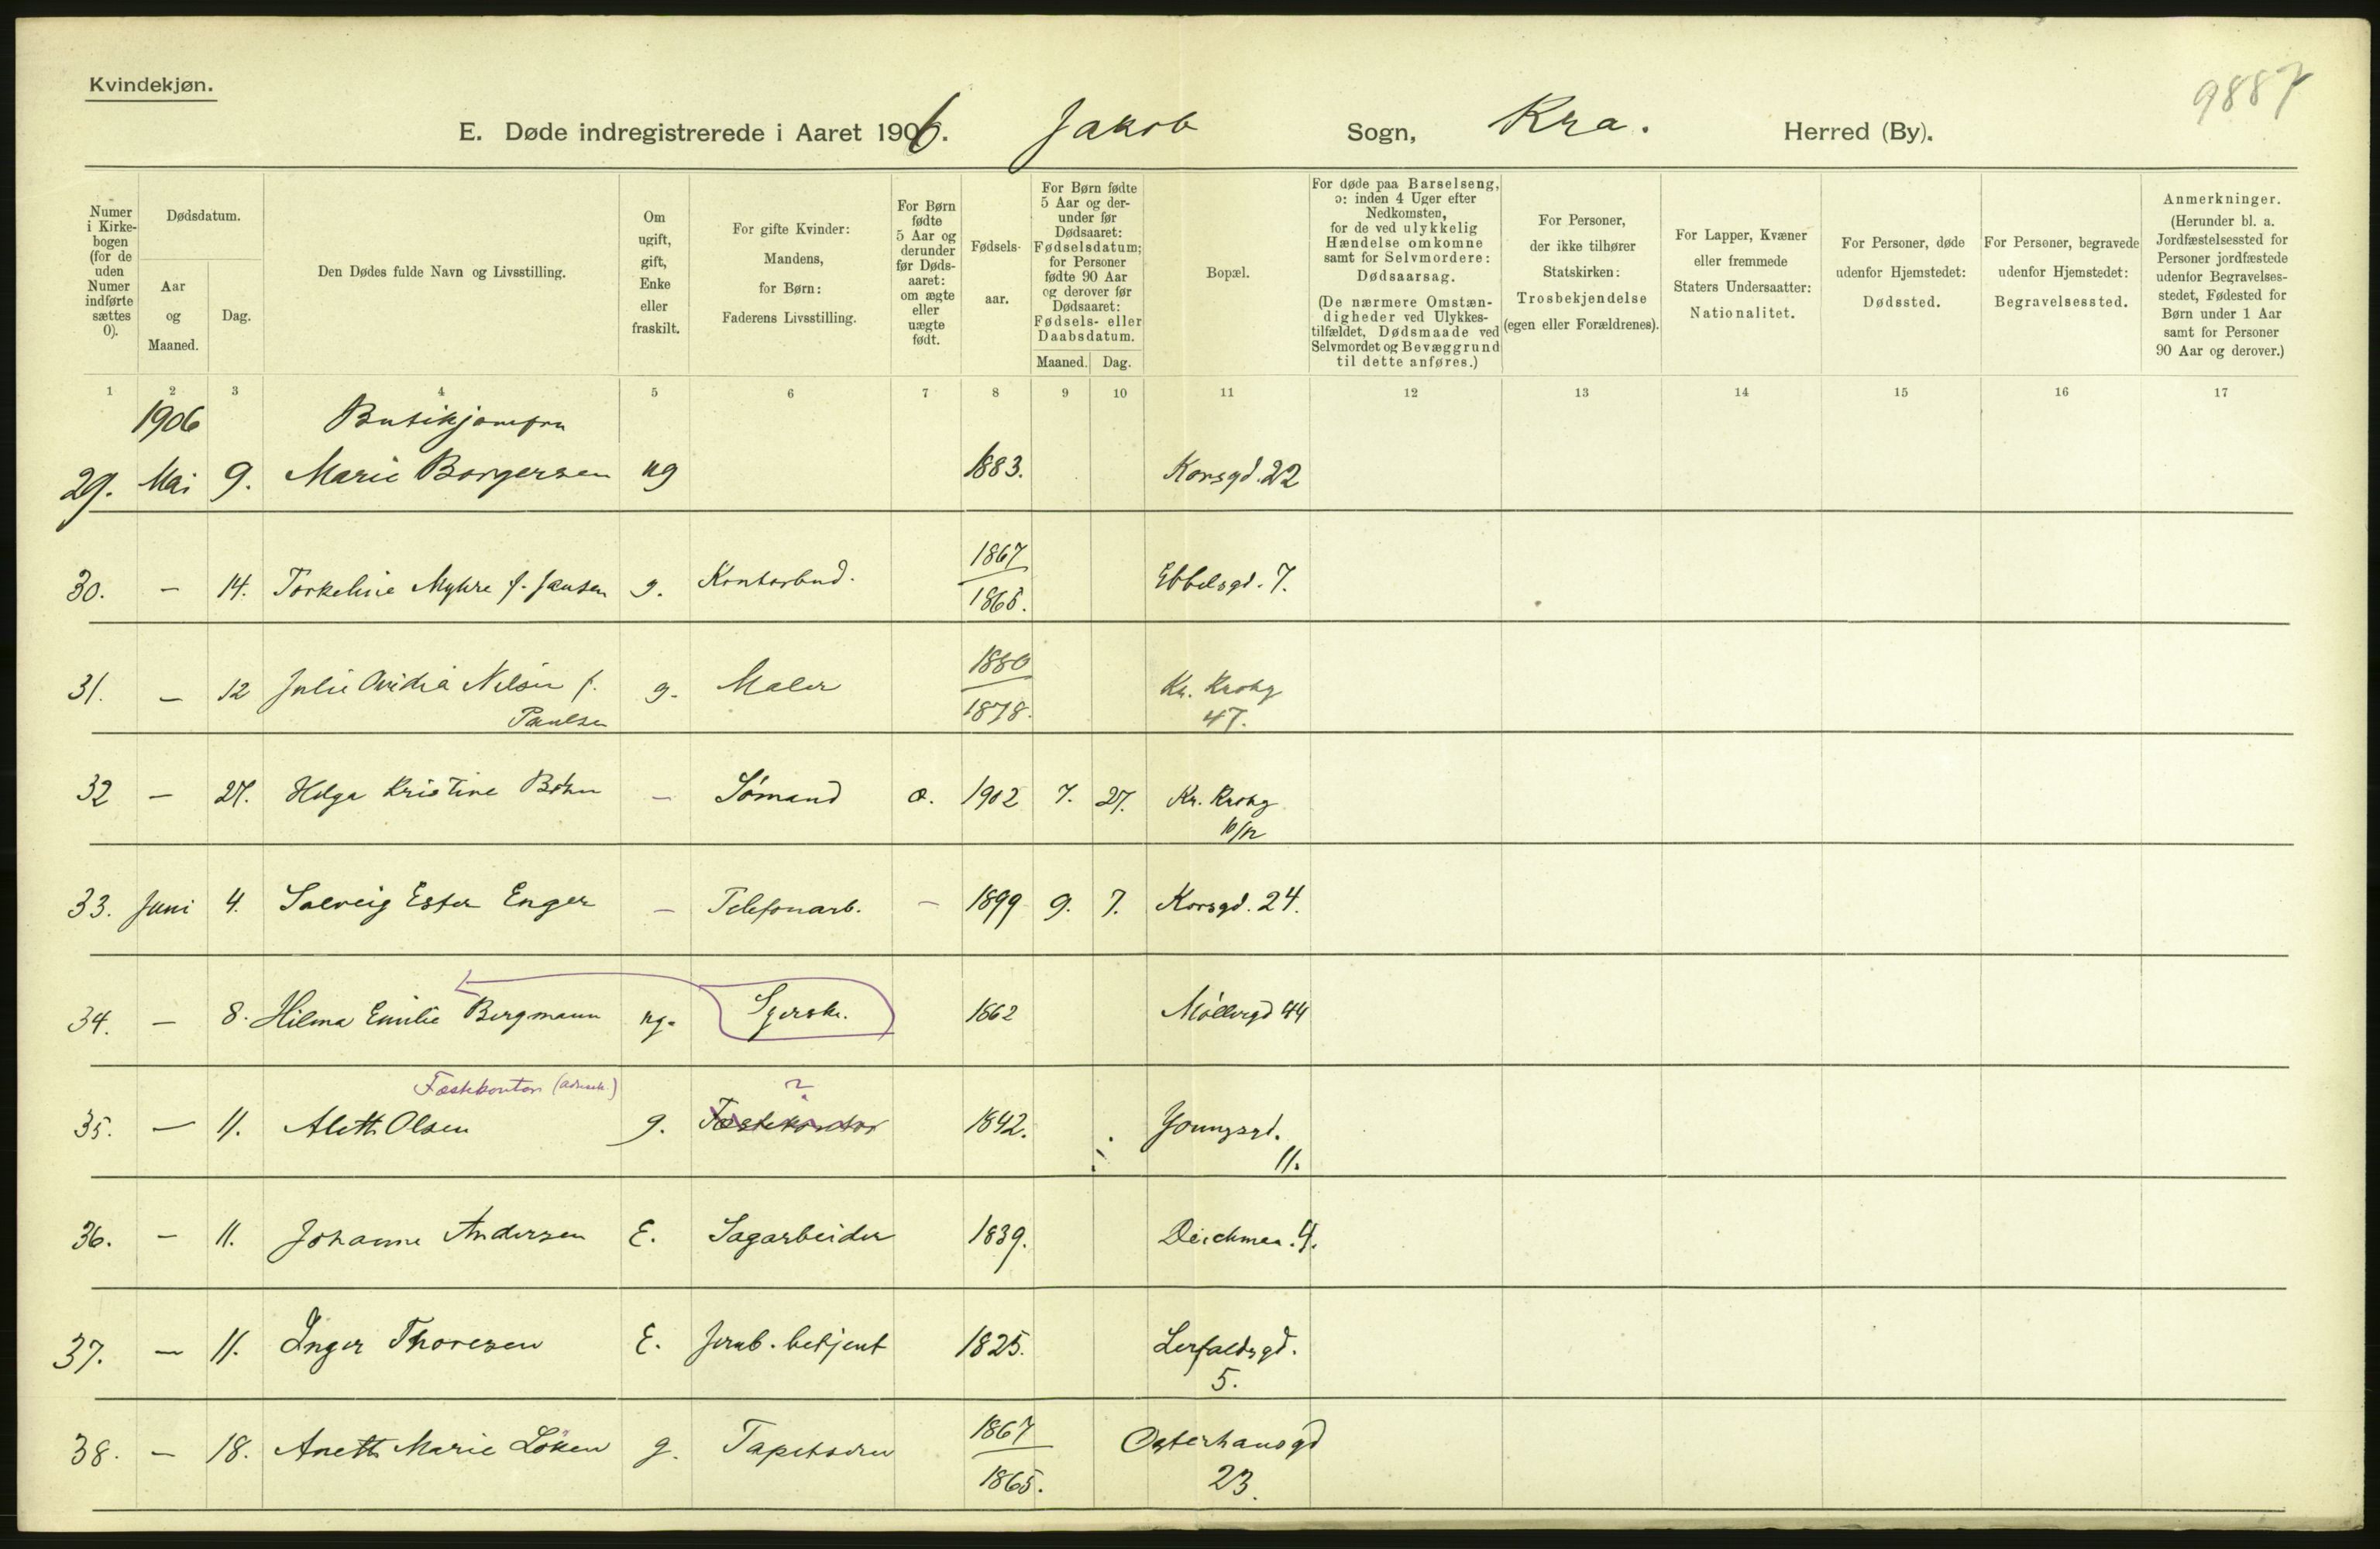 Kvindekjøn.
9887
E. Døde indregistrerede i Aaret 1906. Jakob Sogn, Kra. Herred (By).
Numer i Kirkebogen (for de uden Numer indførte sættes 0).
Dødsdatum.
Aar og Maaned.
Dag.
Den Dødes fulde Navn og Livsstilling.
Om ugift, gift, Enke eller fraskilt.
For gifte Kvinder: Mandens, for Børn: Faderens Livsstilling.
For Børn fødte 5 Aar og derunder før Dødsaaret: om ægte eller uægte født.
Fødselsaar.
For Børn fødte 5 Aar og derunder før Dødsaaret: Fødselsdatum; for Personer fødte 90 Aar og derover før Dødsaaret: Fødsels- eller Daabsdatum.
Maaned. Dag.
Bopæl.
For døde paa Barselseng, ɔ: inden 4 Uger efter Nedkomsten, for de ved ulykkelig Hændelse omkomne samt for Selvmordere: Dødsaarsag.
(De nærmere Omstændigheder ved Ulykkestilfældet, Dødsmaade ved Selvmordet og Bevæggrund til dette anføres.)
For Personer, der ikke tilhører Statskirken: Trosbekjendelse (egen eller Forældrenes).
For Lapper, Kvæner eller fremmede Staters Undersaatter: Nationalitet.
For Personer, døde udenfor Hjemstedet: Dødssted.
For Personer, begravede udenfor Hjemstedet: Begravelsessted.
Anmerkninger.
(Herunder bl. a. Jordfæstelsessted for Personer jordfæstede udenfor Begravelsesstedet, Fødested for Børn under 1 Aar samt for Personer 90 Aar og derover.)
1 2 3 4 5 6 7 8 9 10 11 12 13 14 15 16 17
1906 Butikjomfru
29. Mai 9. Marie Borgersen ug 1883. Korsgd. 22
30. — 14. Torkeline Myhre f. Jansen g. Kontorbud. 1867 1865. Ebbelsgd. 7.
31. — 12 Julie Ovidia Nilsen f. g. Maler 1880 1878. Kr. Krohg
Paulsen 47.
32 — 27. Helga Kristine Böhn — Sömand æ. 1902 7. 27. Kr. Krohg
10/12
33. Juni 4. Solveig Ester Enger — Telefonarb. — 1899 9. 7. Korsgd. 24.
34. — 8. Hilma Emilie Bergmann ug. Syersk. 1862 Möllergd 44
Fæstekontor ?
35. — 11. Aleth Olsen g. Fæstekontor 1842. Youngsgd.
11.
36. — 11. Johanne Andersen E. Sagarbeider 1839. Deichman. 4.
37. — 11. Inger Thoresen E. Jernb. betjent 1825. Lerfaldsgd.
5.
38. — 18. Aneth Marie Löken g. Tapetserer 1867 1865. Osterhausgd
23.